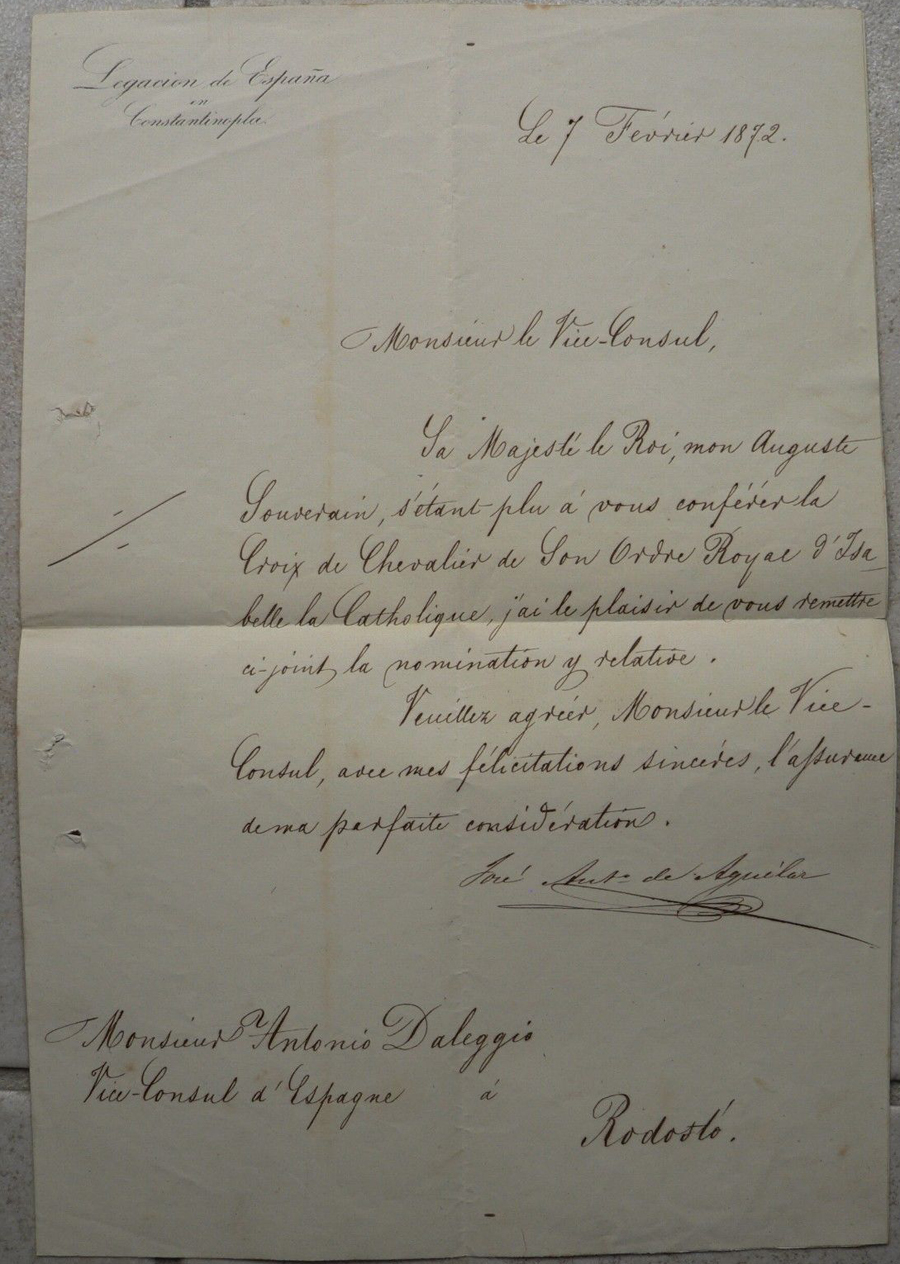 Legacion de España
en
Constantinopla.
Le 7 Février 1872.
Monsieur le Vice-Consul,
Sa Majesté le Roi, mon Auguste
Souverain, s'étant plu á vous conférer la
Croix de Chevalier de Son Ordre Royal d'Isa_
belle la Catholique, j'ai le plaisir de vous remettre
ci-joint la nomination y relative.
Veuillez agréer, Monsieur le Vice-
Consul, avec mes félicitations sincéres, l'assurance
de ma parfaite considération.
José Ant.º de Aguilar
Monsieur Antonio Daleggio
Vice-Consul d'Espagne á
Rodostó.